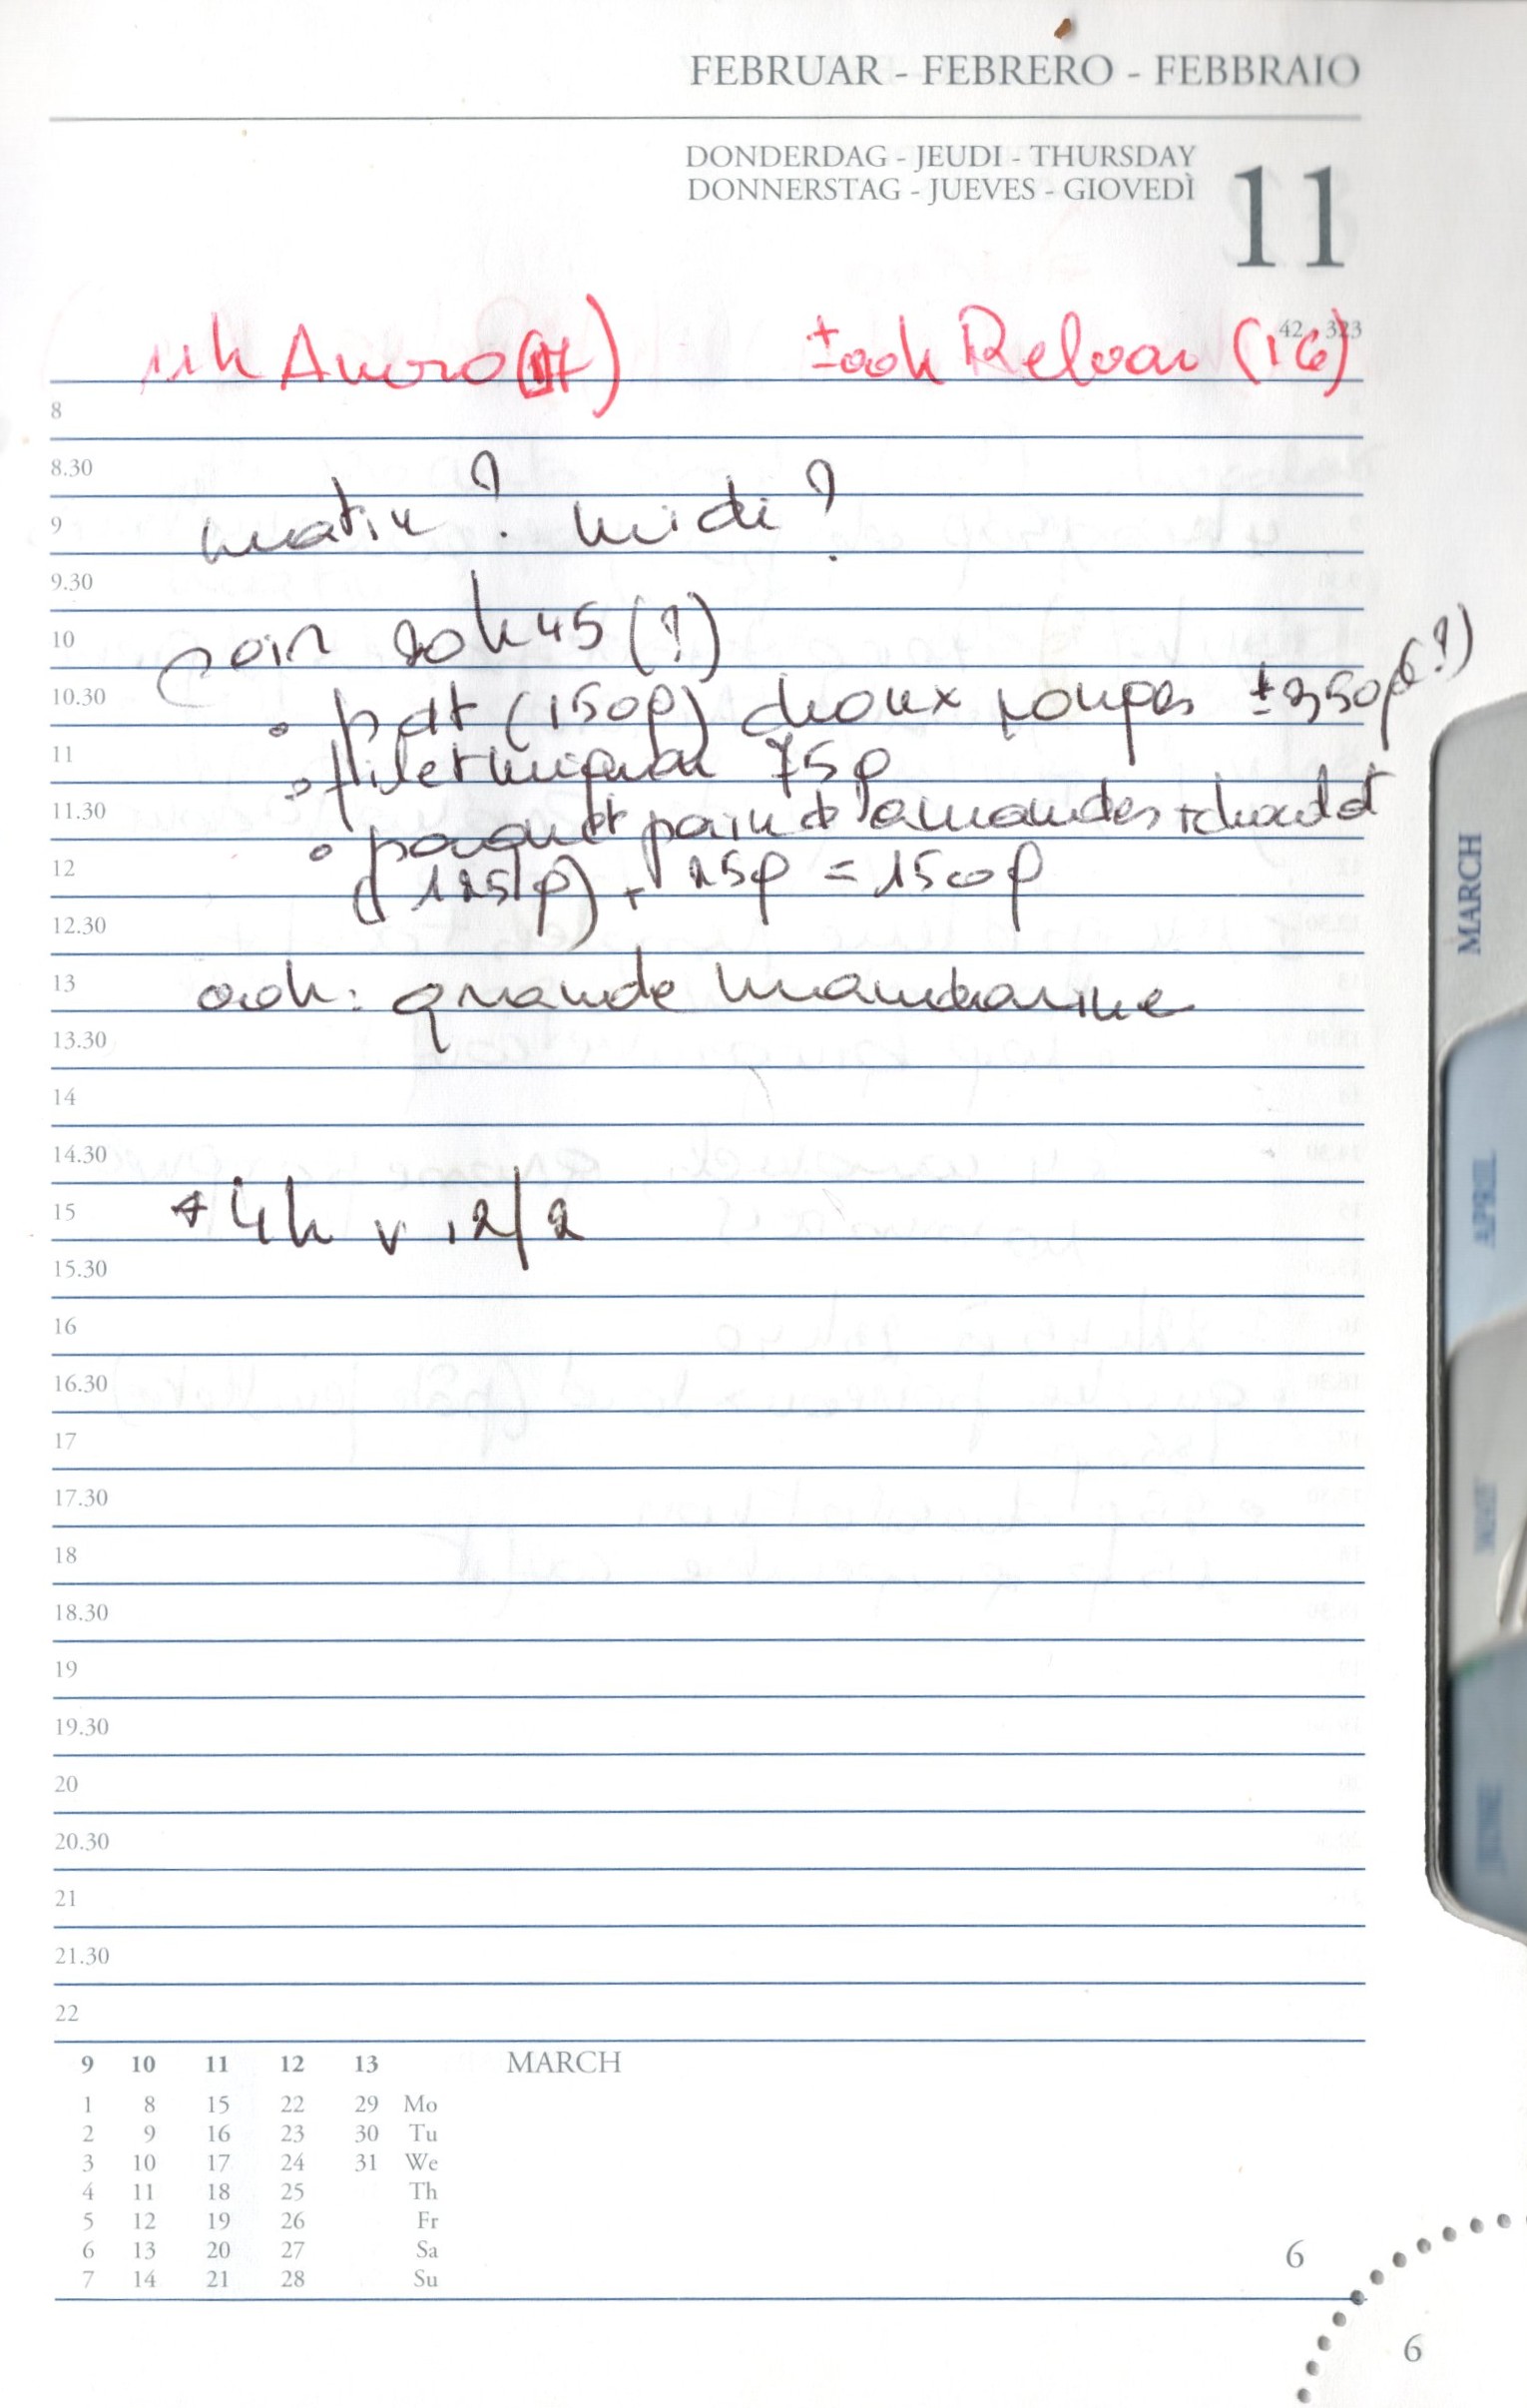 FEBRUAR - FEBRERO - FEBBRAIO
DONDERDAG - JEUDI - THURSDAY
DONNERSTAG - JUEVES - GIOVEDÌ
11
42 323
11h (17) ± 00h Relvar (16)
8
8.30
9 matin ? midi ?
9.30
10 soir 20h45 (?)
10.30 • pdt (150p) choux rouges ± 350p (?)
11 • filet mignon 75p
11.30 • pain d'amandes + chocolat
12 (125p) + 25p = 150p
12.30
13 00h: grande mandarine
13.30
14
14.30
15 4h v 12/2
15.30
16
16.30
17
17.30
18
18.30
19
19.30
20
20.30
21
21.30
22
9 10 11 12 13 MARCH
1 8 15 22 29 Mo
2 9 16 23 30 Tu
3 10 17 24 31 We
4 11 18 25 Th
5 12 19 26 Fr
6 13 20 27 Sa
7 14 21 28 Su
6
6
MARCH
APRIL